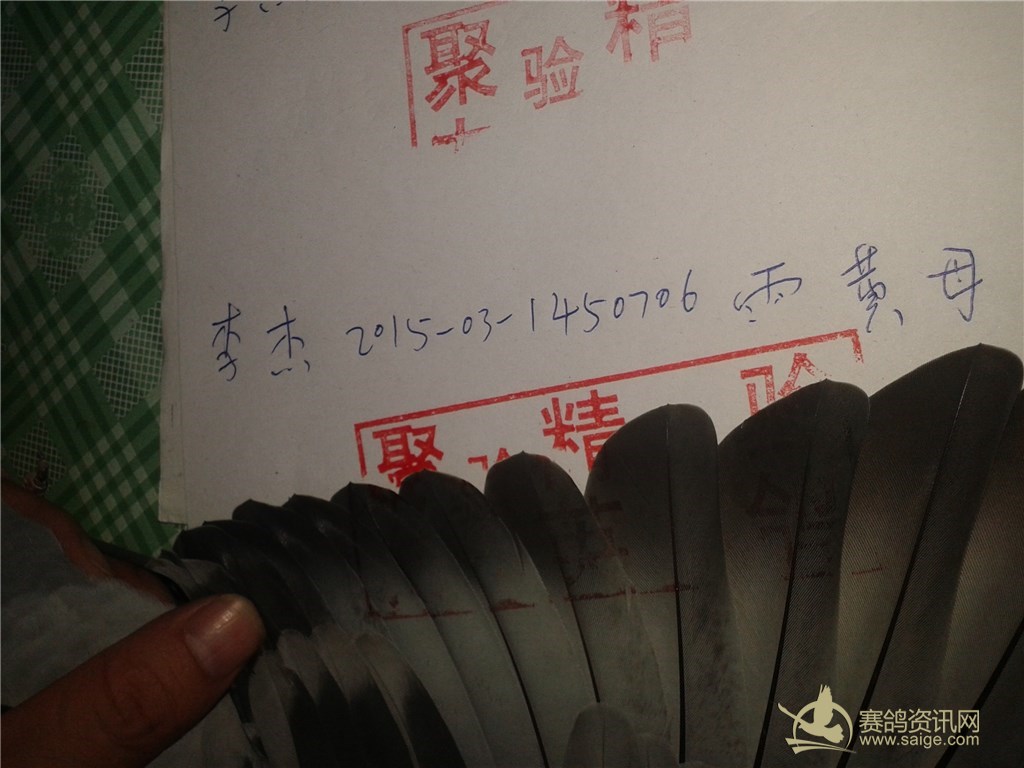 聚 验 精
李杰 2015-03-1450706 雨 黄 母
聚 验 精 验
赛鸽资讯网
www.saige.com